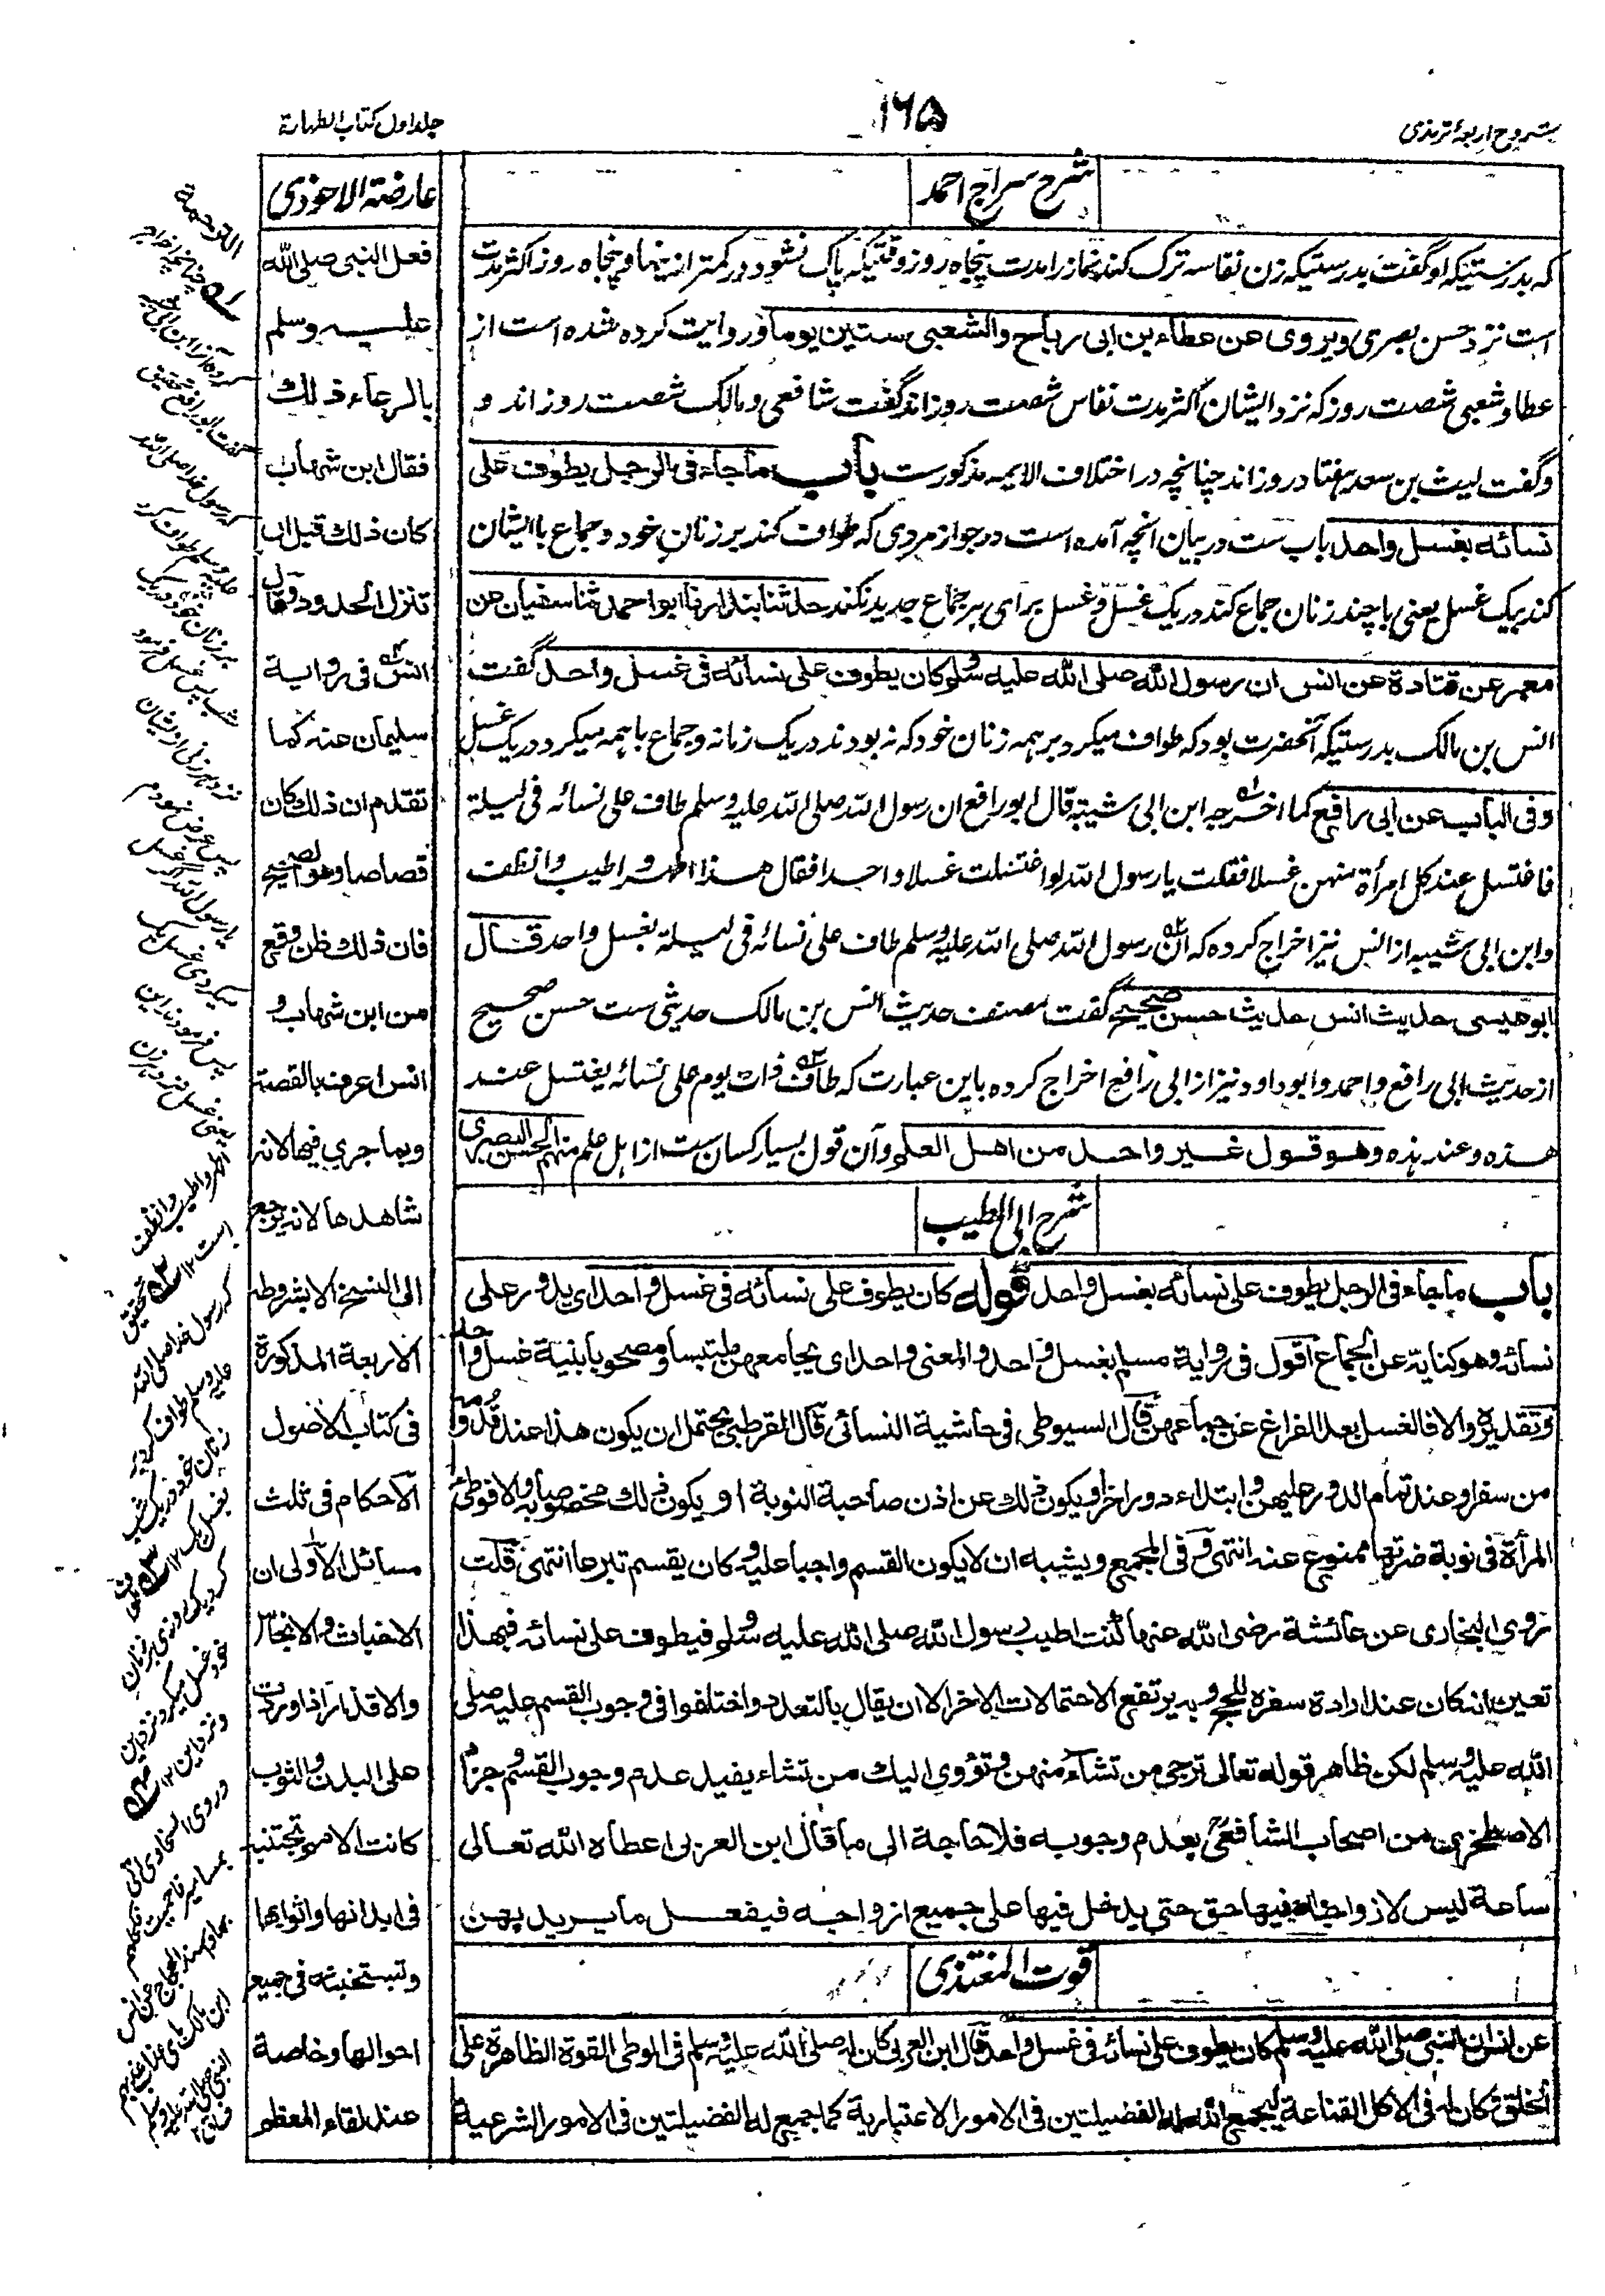 شروح اربعۂ ترمذی
۱۶۵
جلد اول کتاب الطهارة
شرح سراج احمد
که بدرستیکه او گفت بدرستیکه زن نفاسه ترک کند نماز را مدت پنجاه روز وقتیکه پاک نشود در کمتر از ینها و پنجاه روز اکثر مدت
است نزد حسن بصری ویروی عن عطاء بن ابی رباح والشعبی ستین یوما و روایت کرده شده است از
عطا و شعبی شصت روز که نزد ایشان اکثر مدت نفاس شصت روز اند گفت شافعی و مالک شصت روز اند و
و گفت لیث بن سعد هفتاد روز اند چنانچه در اختلاف الایمه مذکورست باب ماجاء فی الرجل یطوف علی
نسائه بغسل واحد باب ست در بیان آنچه آمده است در جواز مردی که طواف کند بر زنان خود و جماع با ایشان
کند بیک غسل یعنی با چند زنان جماع کند در یک غسل و غسل برای هر جماع جدید نکند حدثنا بندار نا ابو احمد ثنا سفیان عن
معمر عن قتادة عن انس ان رسول الله صلی الله علیه وسلم کان یطوف علی نسائه فی غسل واحد گفت
انس بن مالک بدرستیکه آنحضرت بود که طواف میکرد بر همه زنان خود که نه بودند در یک زمانه و جماع با همه میکرد در یک غسل
وفی الباب عن ابی رافع کما اخرجه ابن ابی شیبة قال ابو رافع ان رسول الله صلی الله علیه وسلم طاف علی نسائه فی لیلة
فاغتسل عند کل امرأة منهن غسلا فقلت یا رسول الله لو اغتسلت غسلا واحدا فقال هذا اطهر و اطیب وانظف
وابن ابی شیبه از انس نیز اخراج کرده که ان رسول الله صلی الله علیه وسلم طاف علی نسائه فی لیلة بغسل واحد قال
ابوعیسی حدیث انس حدیث حسن صحیح گفت مصنف حدیث انس بن مالک حدیثی ست حسن صحیح
از حدیث ابی رافع و احمد و ابو داود نیز از ابی رافع اخراج کرده باین عبارت که طاف ذات یوم علی نسائه یغتسل عند
هذه وعند هذه وهو قول غیر واحد من اهل العلم وآن قول بسیار کسان ست از اهل علم منهم الحسن البصری
شرح ابی الطیب
باب ماجاء فی الرجل یطوف علی نسائه بغسل واحد قوله کان یطوف علی نسائه فی غسل واحد ای یدور علی
نسائه وهو کنایة عن الجماع اقول فی روایة مسلم بغسل واحد والمعنی واحد ای یجامعهن ملتبسا ومصحوبا بنیة غسل واحد
وتقدیره والا فالغسل بعد الفراغ عن جماعهن قال السیوطی فی حاشیة النسائی قال القرطبی یحتمل ان یکون هذا عند قدومه
من سفر او عند تمام الدور علیهن وابتداء دور اخر او یکون ذلک عن اذن صاحبة النوبة او یکون ذلک مخصوصا به والا فوطئ
المرأة فی نوبة ضرتها ممنوع عنه انتهی وفی المجمع ویشبه ان لا یکون القسم واجبا علیه وکان یقسم تبرعا انتهی قلت
روی البخاری عن عائشة رضی الله عنها کنت اطیب رسول الله صلی الله علیه وسلم فیطوف علی نسائه فبهذا
تعین انه کان عند ارادة سفره للحج وبه یرتفع الاحتمالات الاخر الا ان یقال بالتعدد واختلفوا فی وجوب القسم علیه صلی
الله علیه وسلم لکن ظاهر قوله تعالی ترجی من تشاء منهن وتؤوی الیک من تشاء یفید عدم وجوب القسم وجزم
الاصطخری من اصحاب الشافعی بعدم وجوبه فلا حاجة الی ما قال ابن العربی اعطاه الله تعالی
ساعة لیس لازواجه فیها حق حتی یدخل فیها علی جمیع ازواجه فیفعل ما یرید بهن
قوت المغتذی
عن انس ان النبی صلی الله علیه وسلم کان یطوف علی نسائه فی غسل واحد قال ابن العربی کان له صلی الله علیه وسلم فی الوطی القوة الظاهرة علی
الخلق وکان له فی الاکل القناعة لیجمع الله له الفضیلتین فی الامور الاعتباریة کما جمع له الفضیلتین فی الامور الشرعیة
عارضة الاحوذی
فعل النبی صلی الله
علیه وسلم
بالرعاء ذلک
فقال ابن شهاب
کان ذلک قبل ان
تنزل الحدود وقال
انس فی روایة
سلیمان عنه کما
تقدم ان ذلک کان
قصاصا وهو الصحیح
فان ذلک ظن وقع
من ابن شهاب و
انس اعرف بالقصة
وبما جری فیها لانه
شاهدها لانه یرجع
الی النسخ الا بشروطه
الاربعة المذکورة
فی کتاب الاصول
الاحکام فی ثلث
مسائل الاولی ان
الاخباث والانجاس
والاقذار اذا وردت
علی البدن والثوب
کانت الامو تجتنبه
فی ابدانها واثوابها
وتستخبثه فی جمیع
احوالها وخاصة
عند لقاء المعظم
الترجمة